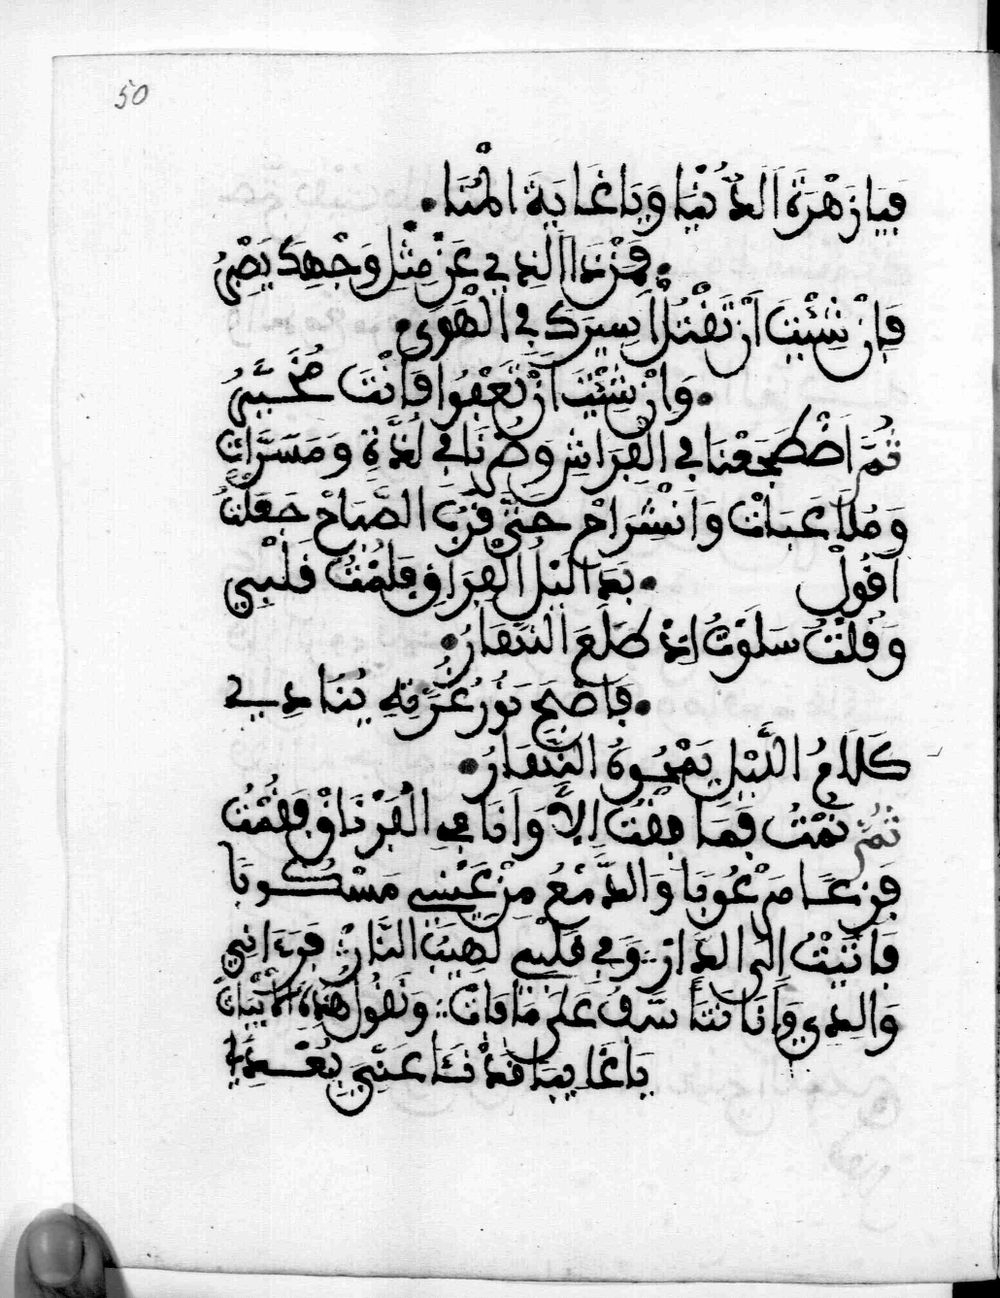 50
فَيَا زَهْرَةَ الدُّنْيَا وَيَا غَايَةَ الْمُنَا .
. فَمْزِنَدَا الَّذِي عَنْ مِثْلِ وَجْهِكَ يَصْبِرُ
فَإِنْ شِئْتَ أَنْ تَقْتُلْ أَسِيرَكَ فِي الْهَوَى .
. وَإِنْ شِئْتَ أَنْ تَعْفُوا فَأَنْتَ مُخَيَّرُ
ثُمَّ اضْطَجَعْنَا فِي الْفِرَاشِ وَصِرْنَا فِي لَذَّةٍ وَمَسَرَّاتْ
وَمُلَاعَبَاتْ وَانْشِرَاحْ حَتَّى قَرُبَ الصَّبَاحْ جَعَلْتُ
اَقُولْ . بَدَا لَيْلُ الْفِرَاقِ فَلِمْتُ قَلْبِي
وَقُلْتُ سَلَوْتُ إِذْ طَلَعَ النَّهَارُ .
. فَأَصْبَحَ نُورُ غُرَّتِهِ يُنَادِي
كَلَامُ اللَّيْلِ يَمْحُوهُ النَّهَارُ .
ثُمَّ نِمْتُ فَمَا فِقْتُ إِلاَّ وَأَنَا فِي الْفُرْنَاقْ فَقُمْتُ
فَزِعًا مَرْعُوبَا وَالدَّمْعُ مِنْ عَيْنِي مَسْكُوبَا
فَأَتَيْتُ إِلَى الدَّارْ وَفِي قَلْبِي لَهِيبُ النَّارْ فَرَءَانِي
وَالِدِي وَأَنَا نَتَأَسَّفُ عَلَى مَا فَاتْ وَنَقُولُ هَذِهِ الْأَبْيَاتْ
يَا غَايِبَا قَدْ نَئَا عَنِّي بُعْدِيَا